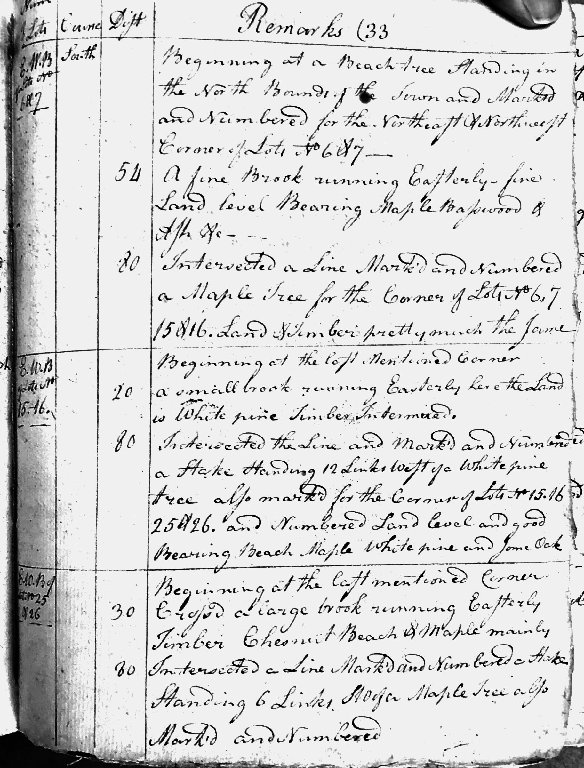 Lots Course Dist Remarks (33
E.W.B South Beginning at a Beach tree Standing in
the North Bounds of the Town and Mark'd
6&7 and Numbered for the Northeast & Northwest
Corner of Lots No 6&7
54 A fine Brook running Easterly - fine
Land level Bearing Maple Basswood &
Ash &c
80 Intersected a Line Mark'd and Numbered
a Maple Tree for the Corner of Lots No 6,7
15&16. Land & Timber pretty much the Same
E.W.B Beginning at the last Mentioned Corner
20 a small brook running Easterly here the Land
15-16. is White pine Timber Intermixed.
80 Intersected the Line and Mark'd and Numbered
a Stake Standing 12 Links West of a White pine
tree also mark'd for the Corner of Lots No 15.16
25&26. and Numbered Land level and good
Bearing Beach Maple White pine and Some Oak
25 Beginning at the last mentioned Corner
&26 30 Cross'd a large brook running Easterly
Timber Chesnut Beach & Maple mainly
80 Intersected a Line Mark'd and Numbered a Stake
Standing 6 Links of a Maple Tree also
Mark'd and Numbered